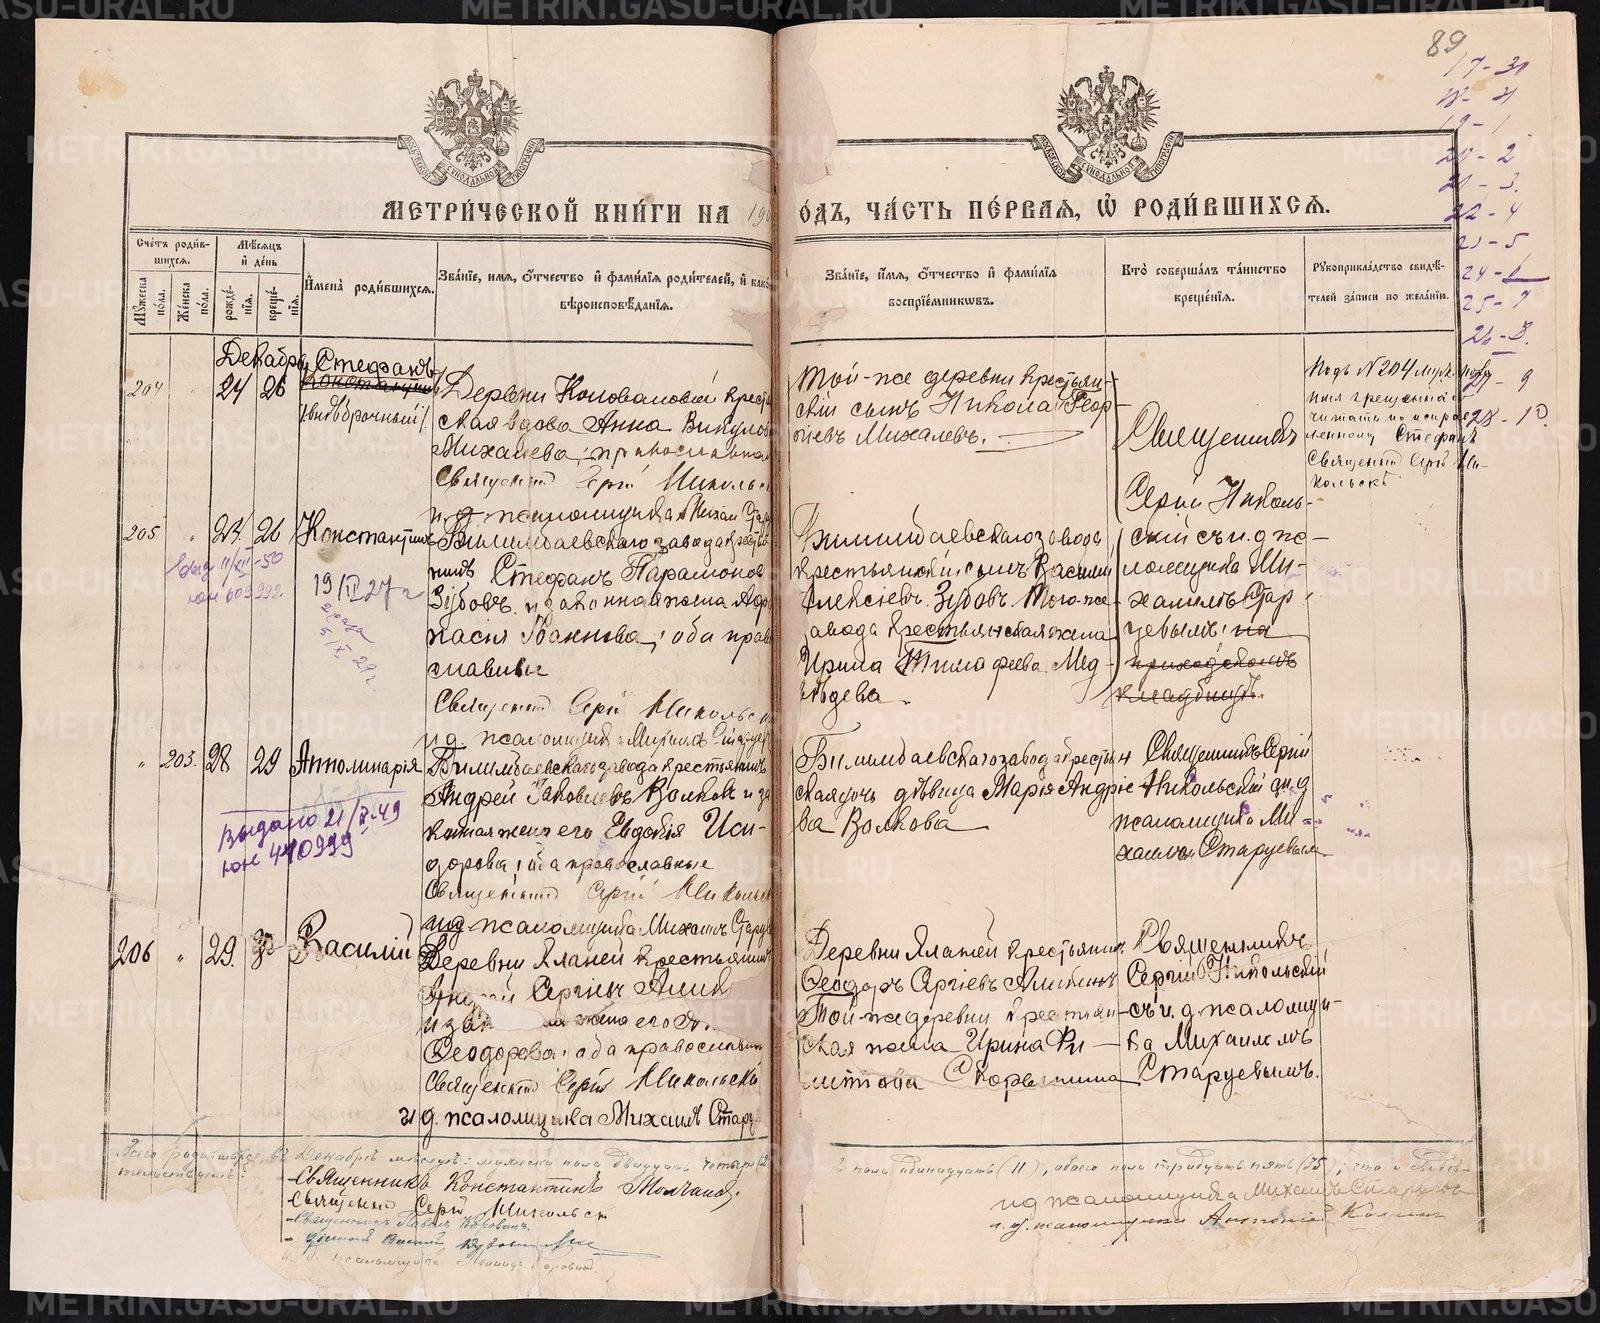 89
17-31
19-1
20-2
21-3.
22-4
23-5
24-6
25-7
26-8.
27-9
28-10.
МЕТРИ́ЧЕСКОЙ КНИ́ГИ НА 190
О́ДЪ, ЧА́СТЬ ПЕ́РВАЯ, Ѡ҆ РОДИ́ВШИХСЯ.
Сче́тъ роди́вшихся.
Му́жеска по́ла.
Же́нска по́ла.
Мѣ́сяцъ и҆ де́нь
рожде́нїя.
креще́нїя.
И҆мена̀ роди́вшихся.
Зва́нїе, и҆мя, ѻ҆́тчество и҆ фами́лїя роди́телей, и҆ како́
вѣроисповѣ́данїя.
Зва́нїе, и҆́мя, ѻ҆́тчество и҆ фами́лїя
воспрїе́мниковъ.
Кто̀ соверша́лъ та́инство
креще́нїя.
Рукоприкла́дство свидѣ́телей за́писи по жела́нїю.
Декабрь
204
24
26
Стефанъ
Константинъ
(внѣбрачный)
Деревни Коноваловой крестьян
ская вдова Анна Викулов
Михалева, православная
Священникъ Сергій Никольск
и. д. псаломщика Михаилъ Стар
Той-же деревни крестьян-
скій сынъ Николай Геор-
гіевъ Михалевъ.
Священникъ
Сергій Николь-
скій съ и. д. пс-
ломщика Ми-
хаиломъ Стар
цевымъ на
приходскомъ
кладбищѣ.
Подъ № 204 муж. пола
имя крещеннаго
читать по исправ
ленному Стефанъ
Священник Сергій Ни-
кольскій
205
24.
26
Константинъ
Выд 11/XII-50
ЮН 609992.
19/II 27 г
2 раза
5/X 29 г.
Билимбаевскаго завода крестья
нинъ Стефанъ Парамонов
Зубовъ и законная жена Афа
насія Іоаннова, оба право
славные
Священникъ Сергій Никольск
и. д. псаломщика Михаилъ Старцев
Билимбаевскаго завода
крестьянскій сынъ Василій
Алексіевъ Зубовъ. Того-же
завода крестьянская жена
Ирина Тимофеева Мед-
вѣдева.
203.
28
29
Апполинарія
Выдано 21/X-49
ЮН 440999
Билимбаевскаго завода крестьянинъ
Андрей Іаковлевъ Волковъ и за
конная жена его Евдокія Иси-
дорова, оба православные
Священникъ Сергій Никольск
и. д. псаломщика Михаилъ Старцев
Билимбаевскаго завода крестьян
ская дочь дѣвица Марія Андріе
ва Волкова
Священникъ Сергій
Никольскій съ и. д
псаломщика Ми-
хаиломъ Старцевымъ.
206
29.
30
Василій
Деревни Яланей крестьянинъ
Андрей Сергіевъ Алик
и зак ная жена его
Ѳеодорова, оба православн
Священникъ Сергій Никольскі
и. д. псаломщика Михаилъ Старце
Деревни Яланей крестьянин
Ѳеодоръ Сергіевъ Аликинъ
Той-же деревни крестьян-
ская жена Ирина Фи-
литова Скорынина
Священникъ
Сергій Никольскій
съ и. д. псаломщи-
ка Михаиломъ
Старцевымъ.
Всего родившихся въ Декабрѣ мѣсяцѣ: мужеска пола двадцать четыре (2
пола одинадцать (11), обоего пола тридцать пять (35), что и свидѣ-
тельствуемъ:
Священникъ Константинъ Молчановъ,
Священникъ Сергій Никольскі
Священникъ Павелъ Коровинъ.
и д псаломщика Михаилъ Старцевъ
и. д. псаломщика Антоній